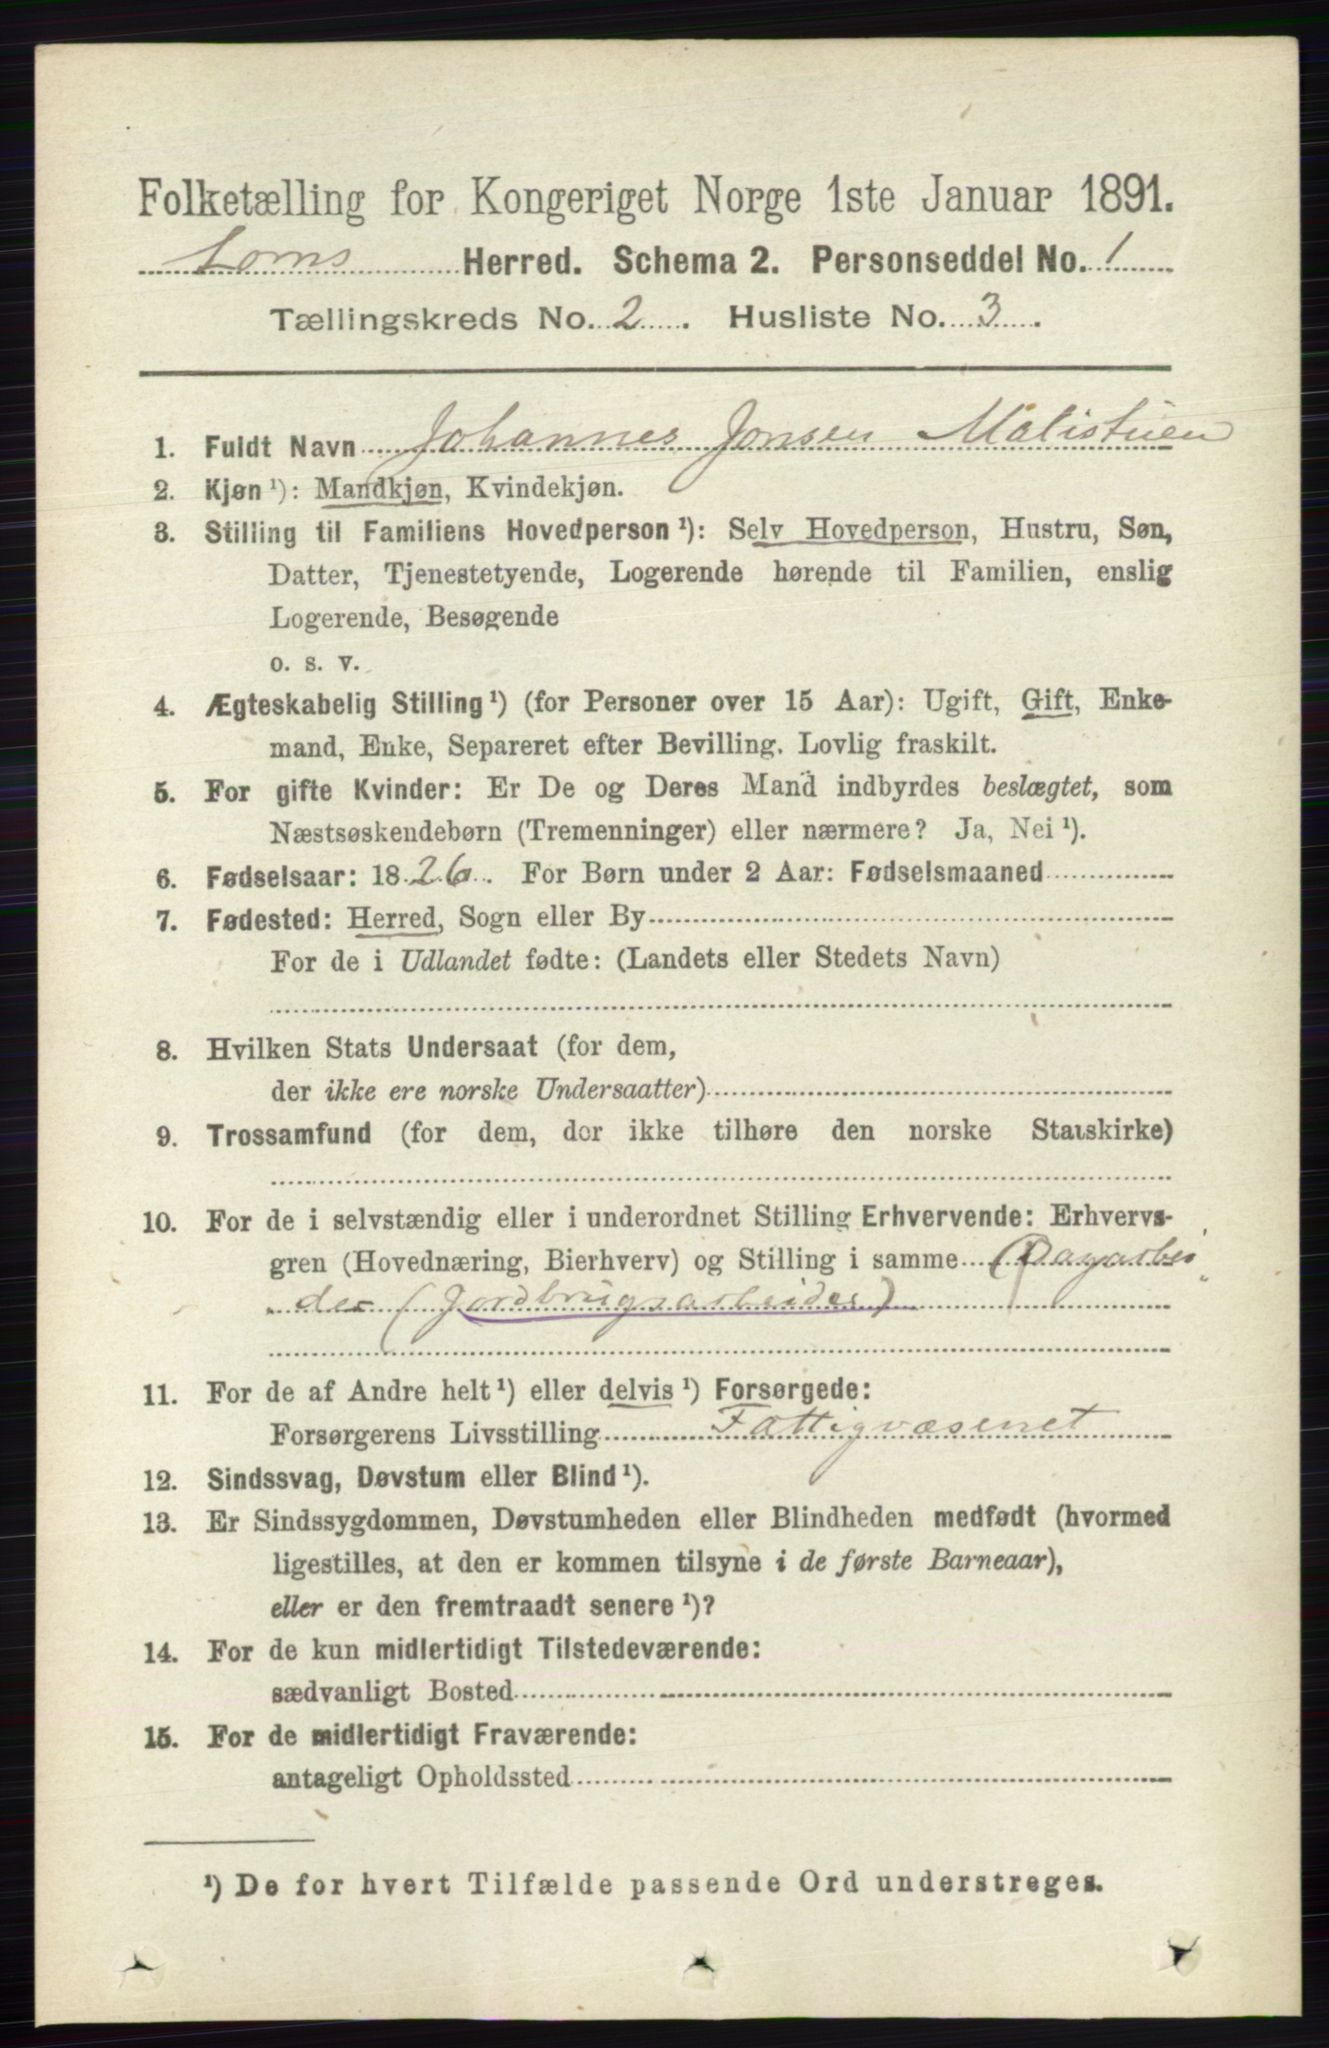 Folketælling for Kongeriget Norge 1ste Januar 1891.
Loms Herred. Schema 2. Personseddel No. 1
Tællingskreds No. 2. Husliste No. 3.
1. Fuldt Navn Johannes Jonsen Molistuen
2. Kjøn ¹): Mandkjøn, Kvindekjøn.
3. Stilling til Familiens Hovedperson ¹): Selv Hovedperson, Hustru, Søn,
Datter, Tjenestetyende, Logerende hørende til Familien, enslig
Logerende, Besøgende
o. s. v.
4. Ægteskabelig Stilling ¹) (for Personer over 15 Aar): Ugift, Gift, Enke-
mand, Enke, Separeret efter Bevilling. Lovlig fraskilt.
5. For gifte Kvinder: Er De og Deres Mand indbyrdes beslægtet, som
Næstsøskendebørn (Tremenninger) eller nærmere? Ja, Nei ¹).
6. Fødselsaar: 1826. For Børn under 2 Aar: Fødselsmaaned
7. Fødested: Herred, Sogn eller By
For de i Udlandet fødte: (Landets eller Stedets Navn)
8. Hvilken Stats Undersaat (for dem,
der ikke ere norske Undersaatter)
9. Trossamfund (for dem, der ikke tilhøre den norske Statskirke)
10. For de i selvstændig eller i underordnet Stilling Erhvervende: Erhvervs-
gren (Hovednæring, Bierhverv) og Stilling i samme (Dagarbei
der (Jordbrugsarbeider)
11. For de af Andre helt ¹) eller delvis ¹) Forsørgede:
Forsørgerens Livsstilling Fattigvæsenet
12. Sindssvag, Døvstum eller Blind ¹).
13. Er Sindssygdommen, Døvstumheden eller Blindheden medfødt (hvormed
ligestilles, at den er kommen tilsyne i de første Barneaar),
eller er den fremtraadt senere ¹)?
14. For de kun midlertidigt Tilstedeværende:
sædvanligt Bosted
15. For de midlertidigt Fraværende:
antageligt Opholdssted
¹) De for hvert Tilfælde passende Ord understreges.